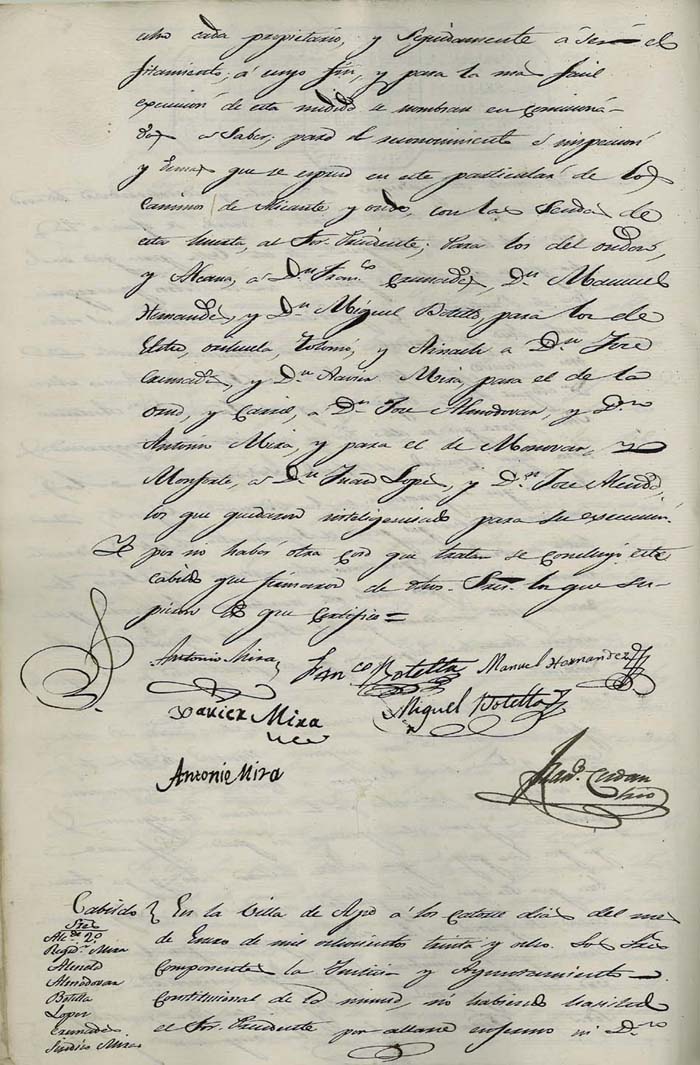 cada propietario, y seguidamente á el
á cuyo fin, y para la mas facil
de esta medida se nombran en comisiona-
dos á saber; para el reconocimiento é inspeccion
y que se en este particular de los
caminos de Alicante y con las Sendas de
esta huerta, al Sor. Presidente; para los del
y á Dn. Franco. Cremades, Dn. Manuel
Hernandez, y Dn. Miguel Botella, para los de
Elche, orihuela, y á Dn. Jose
Cremades, y Dn. Xavier Mira, para el de la
y á Dn. Jose Almodovar, y Dn.
Antonio Mira, y para el de Monovar, y
Monforte, á Dn. Juan Lopez, y Dn. Jose
los que quedaron inteligenciados para su execucion.
Y por no haber otra cosa que tratar se concluyó este
cabildo que firmaron de dhos. Sres. los que su-
pieron de que certifico =
Antonio Mira Franco Botella Manuel Hernandez
Xavier Mira Miguel Botella
Antonio Mira
Franco. Cerdan
Srio
Cabildo
Sres
Alce. 2º.
Regidn. Mira
Almodovar
Botella
Lopez
Cremades
Sindico Mira
En la Villa de Aspe á los Catorce dias del mes
de Enero de mil ochocientos treinta y ocho. Los Sres
Componentes la Justicia y Ayuntamiento
Constitucional de la misma, no habiendo
el Sor. Presidente por allarse enfermo ni Dn.